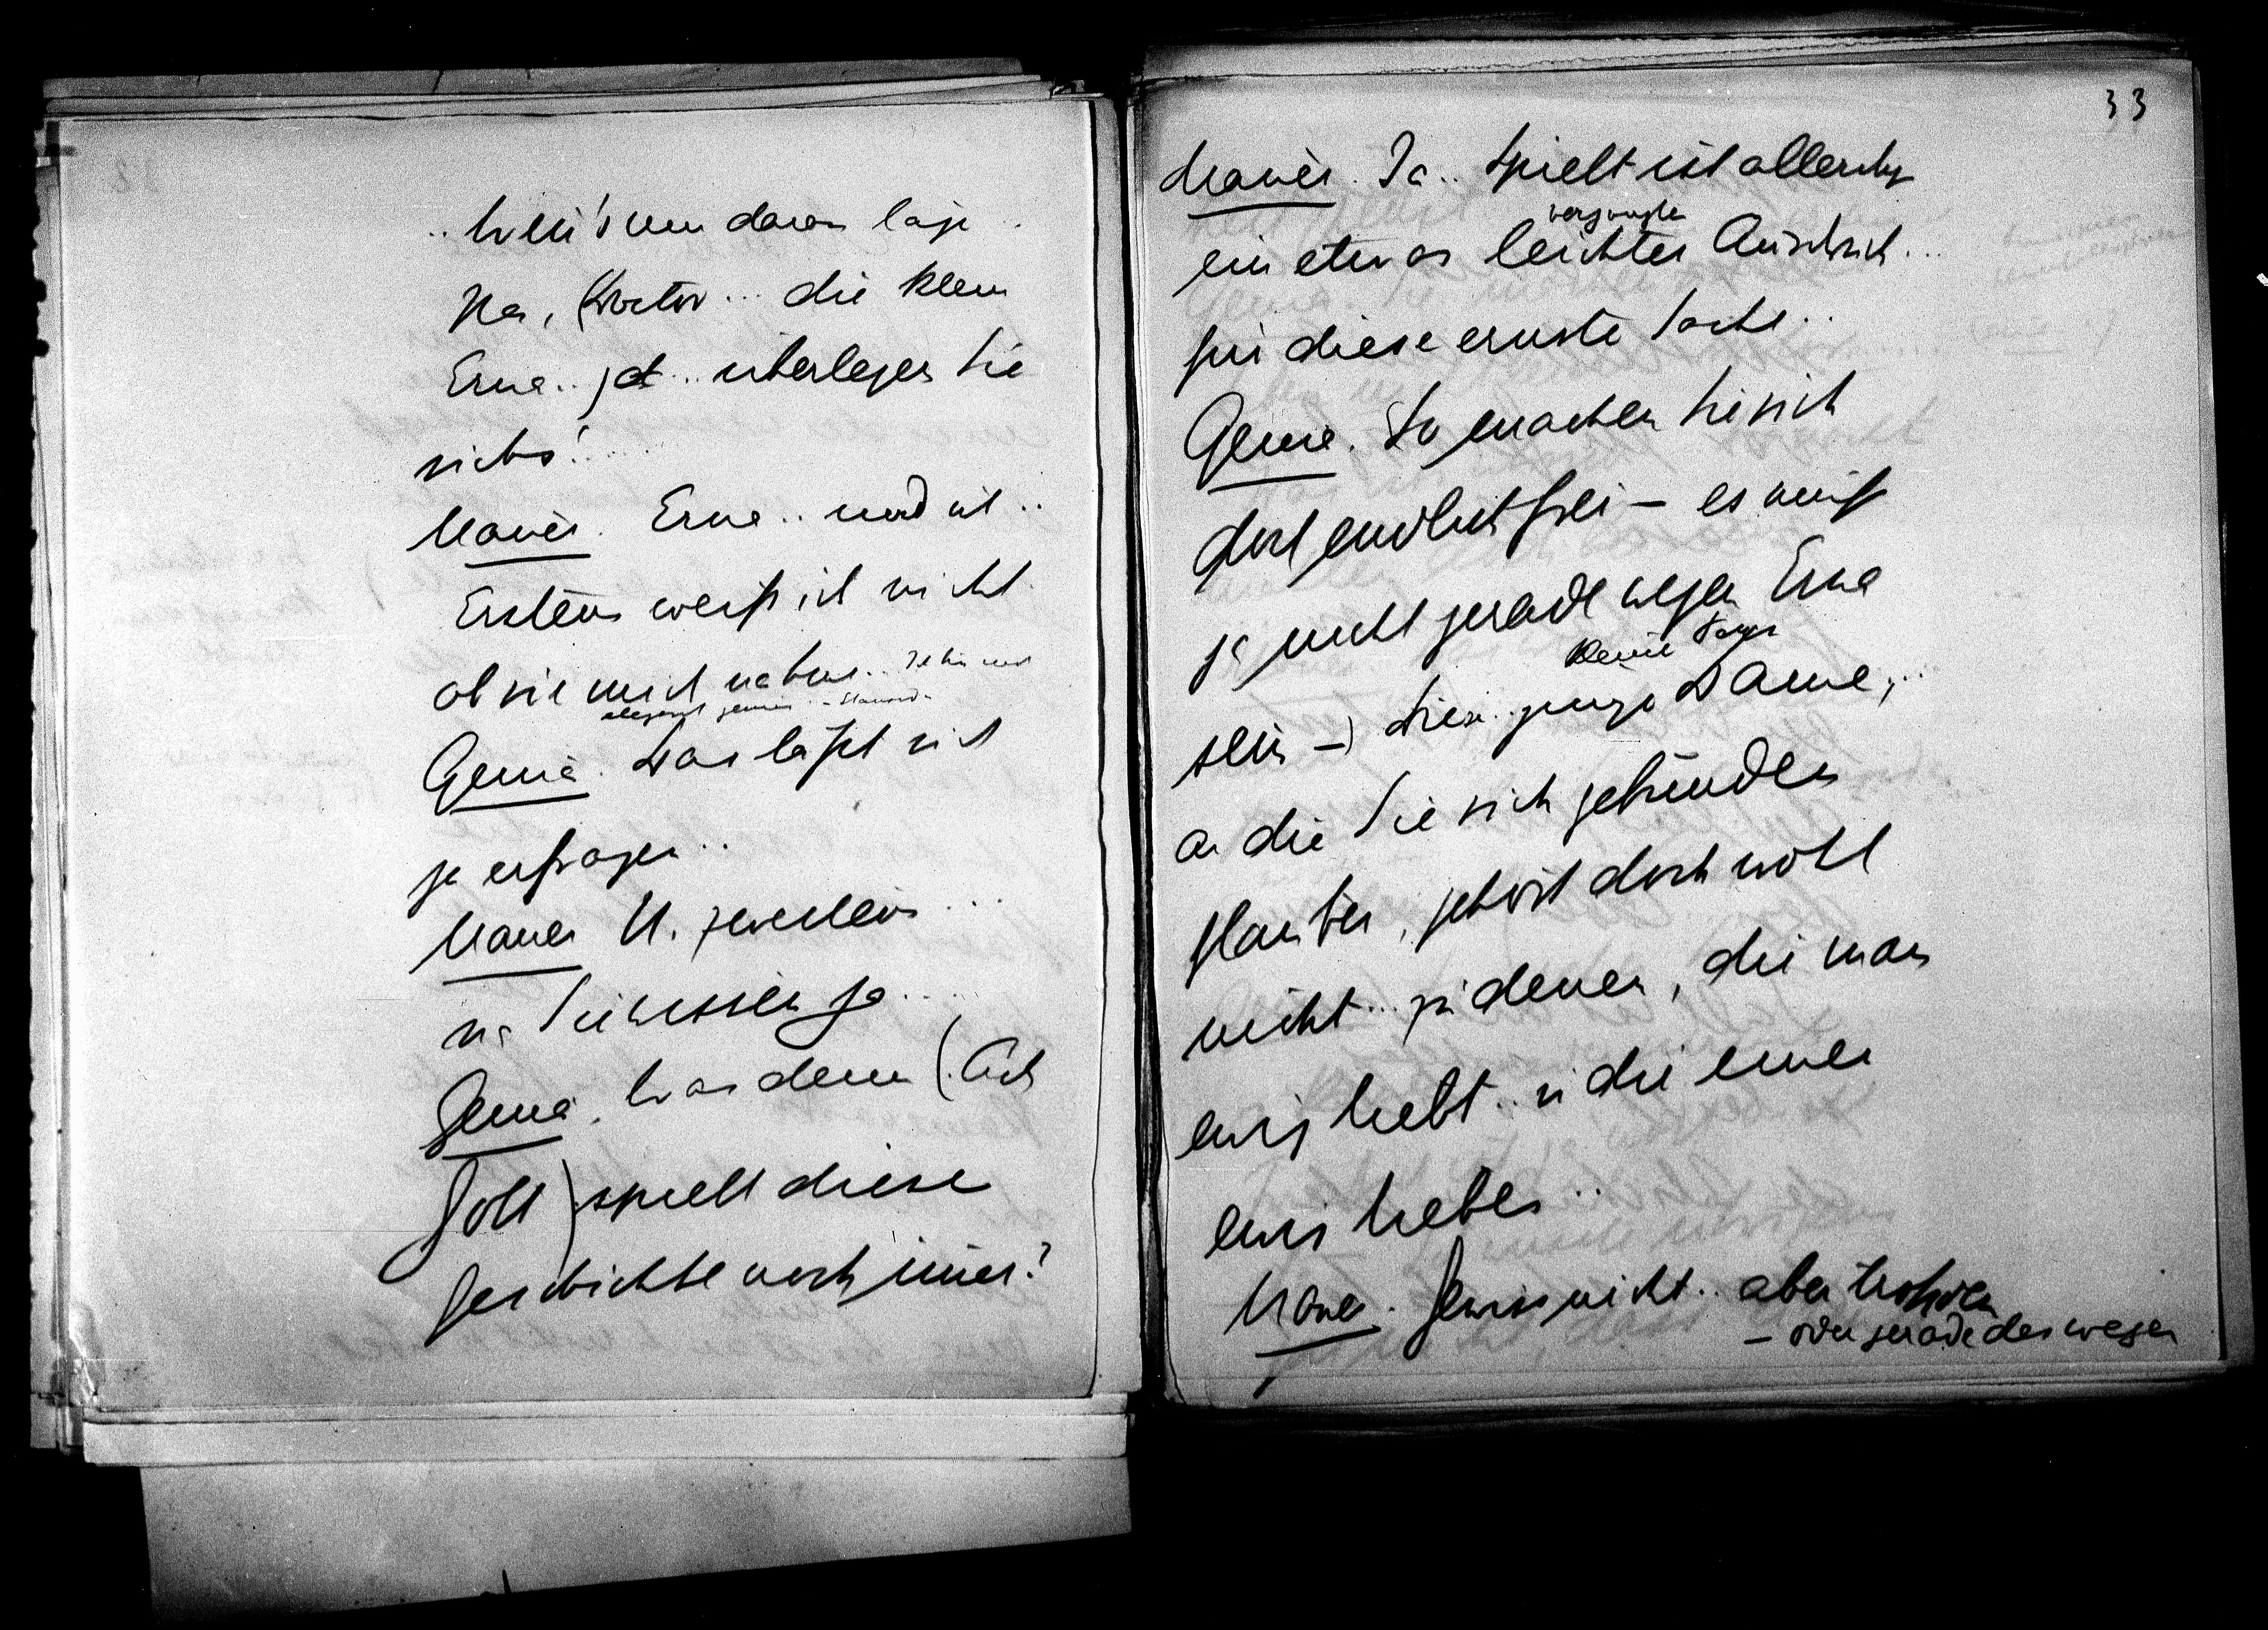 .. Wenn's nur daran läge ..
Na, Doctor ... die kleine
Erna .. ja .. überlegen Sie
sichs! ....
Mauer. Erna .. und ich ..
Erstens weiß ich nicht
ob sie mich nähme .. Ich bin nicht
elegant genug ..
Genia. Das läßt sich
ja erfragen ..
Mauer U. zweitens ...
na Sie wissen ja ....
Genia. Was denn (Ach
Gott) spielt diese
Geschichte noch immer?
33
Mauer. Ja .. Spielt ist allerdgs
ein etwas leichter Ausdruck ...
für diese ernste Sache ..
Genia. So machen Sie sich
doch endlich frei – es muß
ja nicht gerade wegen Erna
kleine
sein –) diese .. junge Dame, ..
an die Sie sich gebunden
glauben, gehört doch wohl
nicht .. zu denen, die man
ewig liebt .. u die einen
ewig lieben ..
Mauer. Gewiss nicht .. aber trotzdem
– oder gerade deswegen